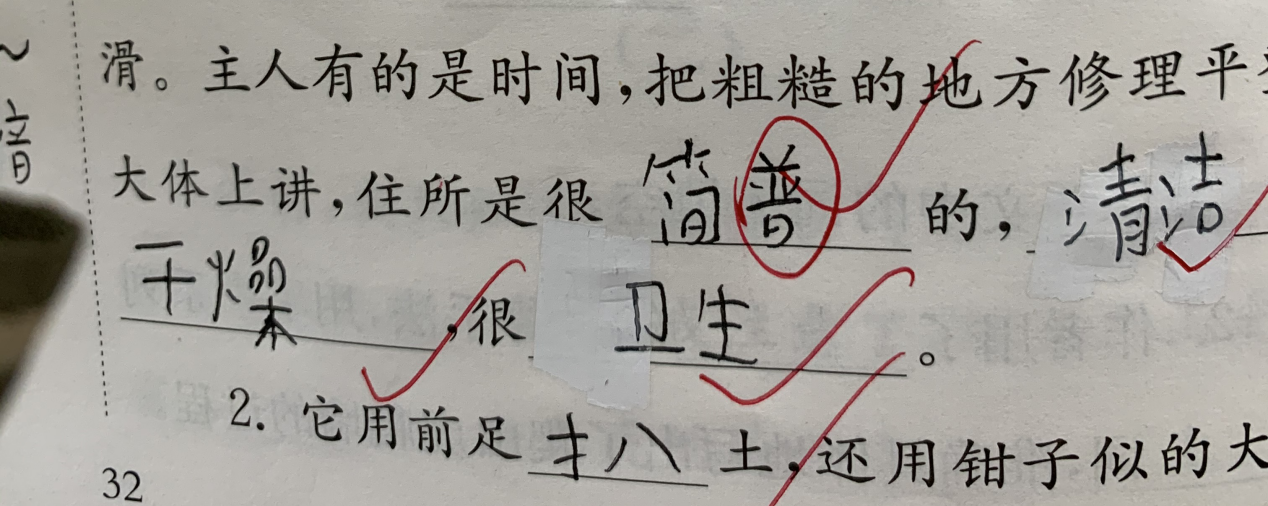 滑。主人有的是时间，把粗糙的地方修理平
大体上讲，住所是很简普的，清洁
干燥，很卫生。
2. 它用前足扒土，还用钳子似的大
32